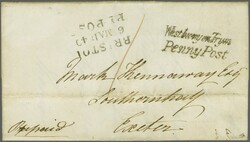 BRISTOL
6 MAR 42
Westbury on Trym
Penny Post
Mark Kennaway Esq
Exeter
Prepaid